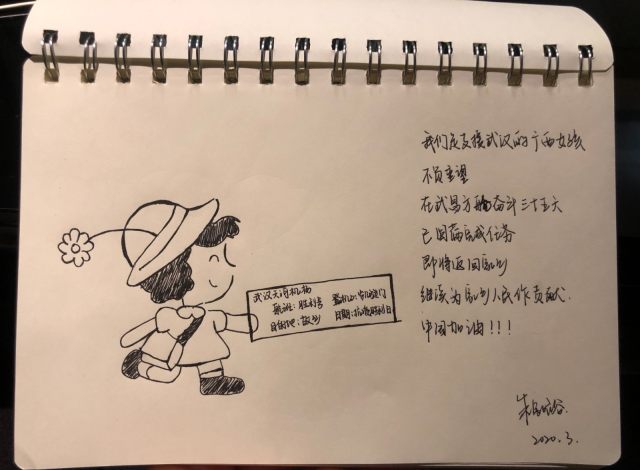 武汉天河机场
航班:胜利号 登机口:凯旋门
目的地:故乡 日期:抗疫胜利日
我们是支援武汉的广西女孩
不负重望
在武昌方舱奋斗三十五天
已圆满完成任务
即将返回家乡
继续为家乡人民作贡献.
中国加油!!!
2020.3.